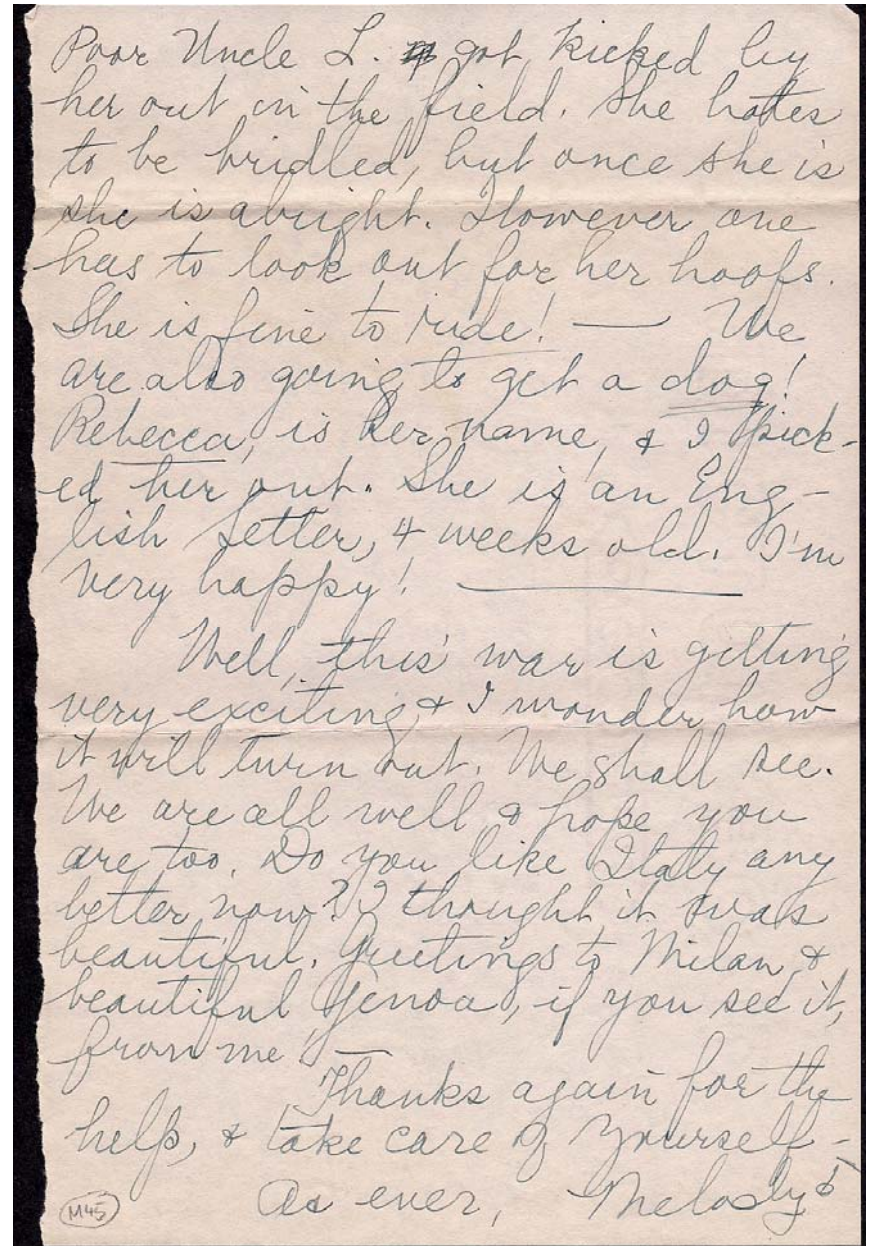 Poor Uncle L. got kicked by
her out in the field. She hates
to be bridled, but once she is
she is alright. However one
has to look out for her hoofs.
She is fine to ride! — We
are also going to get a dog!
Rebecca, is her name, & I pick-
ed her out. She is an Eng-
lish Setter, 4 weeks old. I'm
very happy! —
Well, this war is getting
very exciting & I wonder how
it will turn out. We shall see.
We are all well & hope you
are too. Do you like Italy any
better now? I thought it was
beautiful. Greetings to Milan &
beautiful Genoa, if you see it,
from me! —
Thanks again for the
help, & take care of yourself –
As ever, Melody
M45